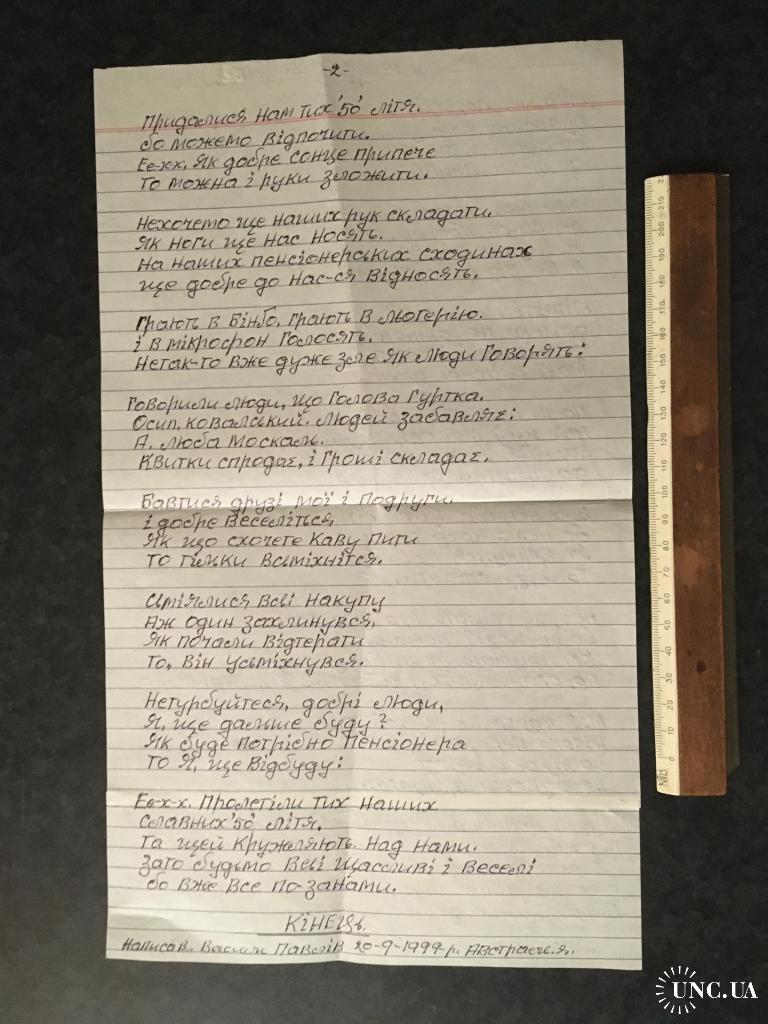 -2-
Придалися нам тих '50' літя.
бо можемо відпочити.
Ее-х-х, як добре сонце припече
то можна і руки зложити.
Нехочемо ще наших рук складати.
як ноги ще нас носять.
на наших пенсіонерських сходинах
ще добре до нас-ся відносять.
Грають в Бінґо, грають в льотерію.
і в мікрофон голосять.
Нетак-то вже дуже зле як люди говорять:
Говорили люди, що голова гуртка.
Осип. Ковальський. людей забавляє:
А. Люба Москаль.
Квитки спродає, і гроші складає.
Бавтися друзі мої і подруги.
і добре веселіться
як що схочете каву пити
то тільки всміхнітся.
Сміялися всі накупу
Аж один захлинувся,
як почали відтерати
то, він усьміхнувся.
Нетурбуйтеся, добрі люди,
я, ще дальше буду?
як буде потрібно пенсіонера
то я, ще відбуду:
Ее-х-х. Пролетіли тих наших
славних '50' літя.
та щей кружляють над нами.
зато будьмо всі щасливі і веселі
бо вже все по-занами.
Кінець.
Написав. Василь Павлів 20-9-1999-р. Австралія.
0 10 20 30 40 50 60 70 80 90 100 110 120 130 140 150 160 170 180 190 200 210
UNC.UA